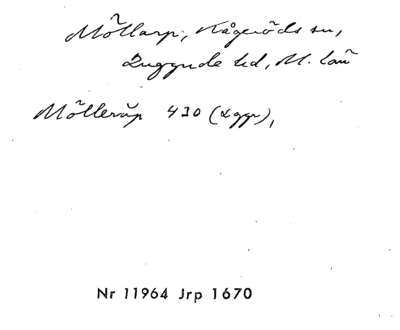 Möllarp, Kågeröds sn,
Luggude hd, M. län
Möllerup 430 (Lggr),
Nr 11964 Jrp 1670